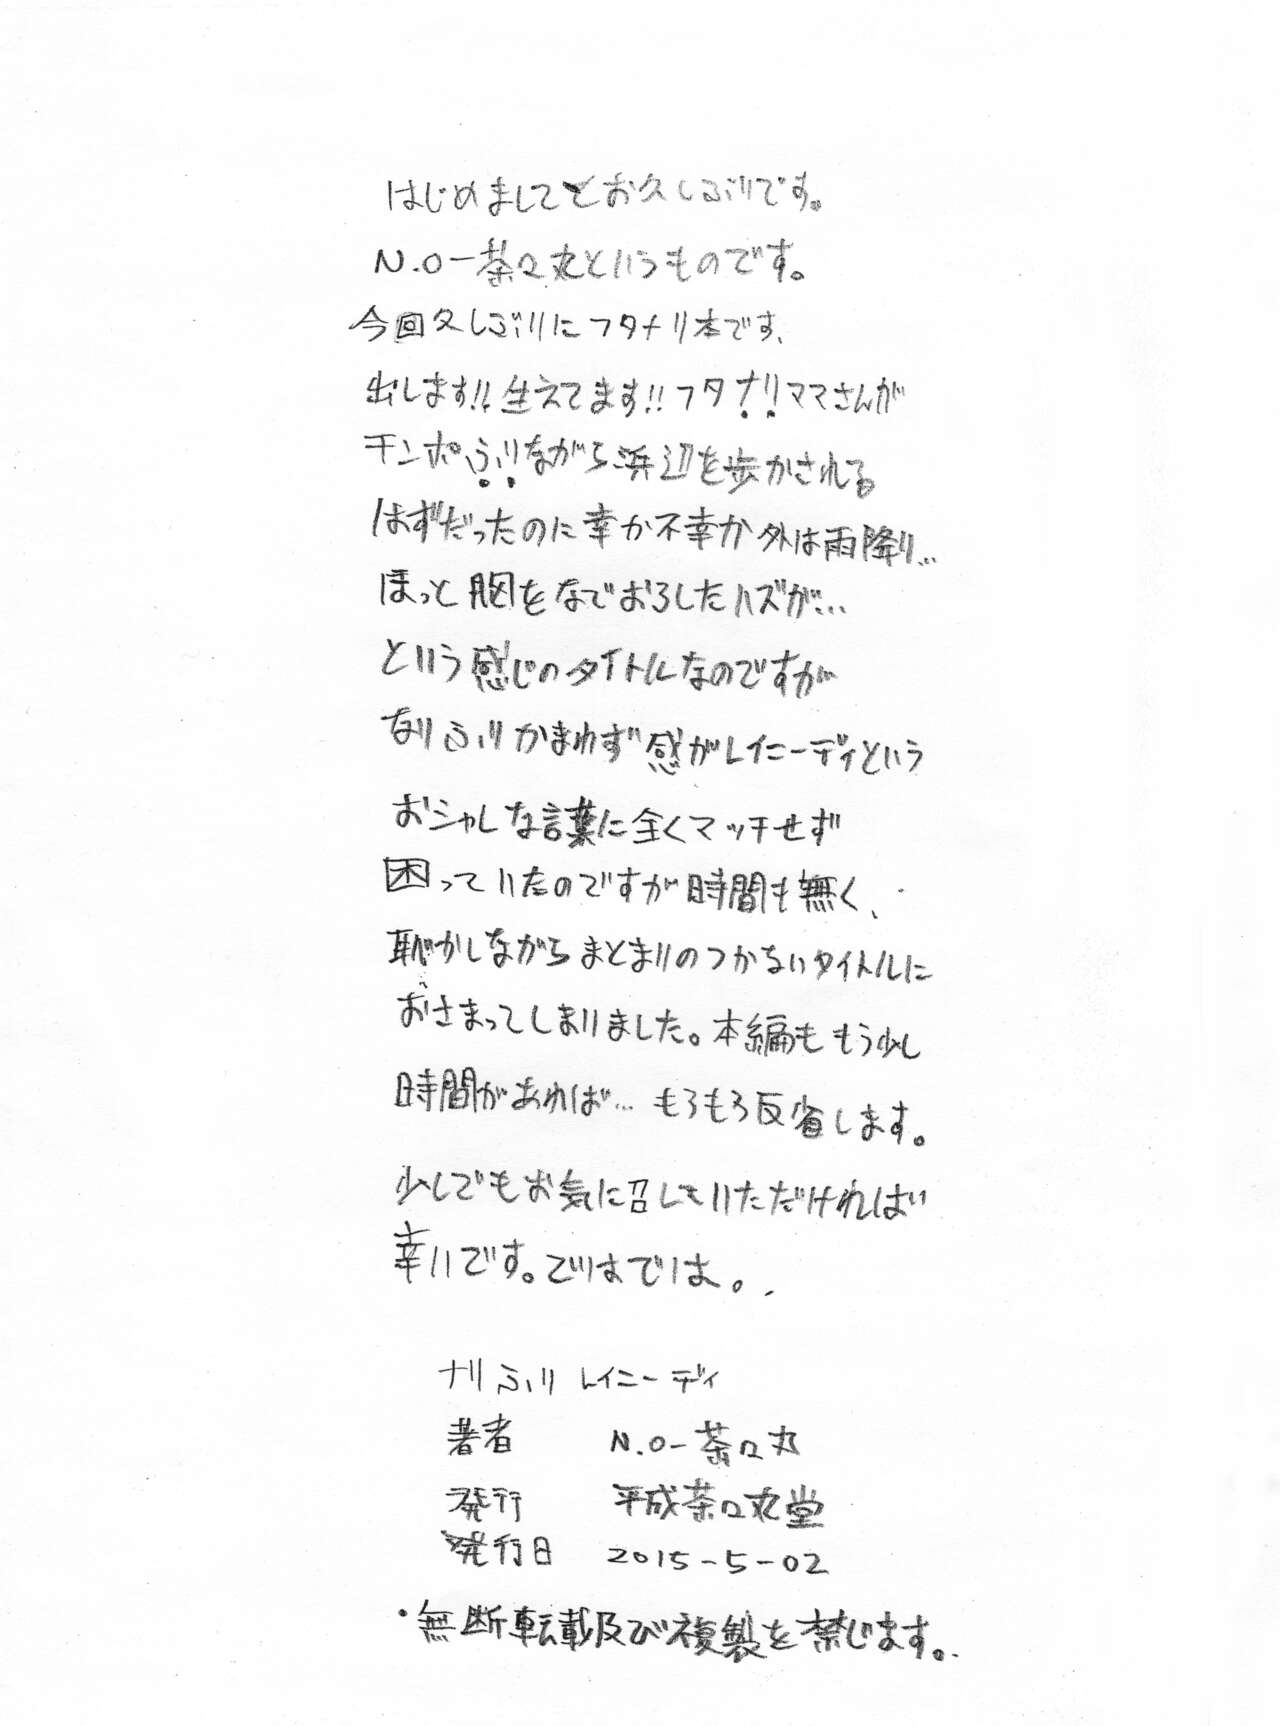 はじめましてとお久しぶりです。
N.O-茶々丸というものです。
今回久しぶりにフタナリ本です、
出します!!生えてます!!フタナリママさんが
チンポふりながら浜辺を歩かされる
はずだったのに幸か不幸か外は雨降り…
ほっと胸をなでおろしたハズが…
という感じのタイトルなのですが
なりふりかまわず感がレイニーディという
おシャレな言葉に全くマッチせず
困っていたのですが時間も無く、
恥かしながらまとまりのつかないタイトルに
おさまってしまいました。本編ももう少し
時間があれば…もろもろ反省します。
少しでもお気に召していただければ
幸いです。ではでは。
ナリふり レイニーディ
著者 N.O-茶々丸
発行 平成茶々丸堂
発行日 2015-5-02
・無断転載及び複製を禁じます。